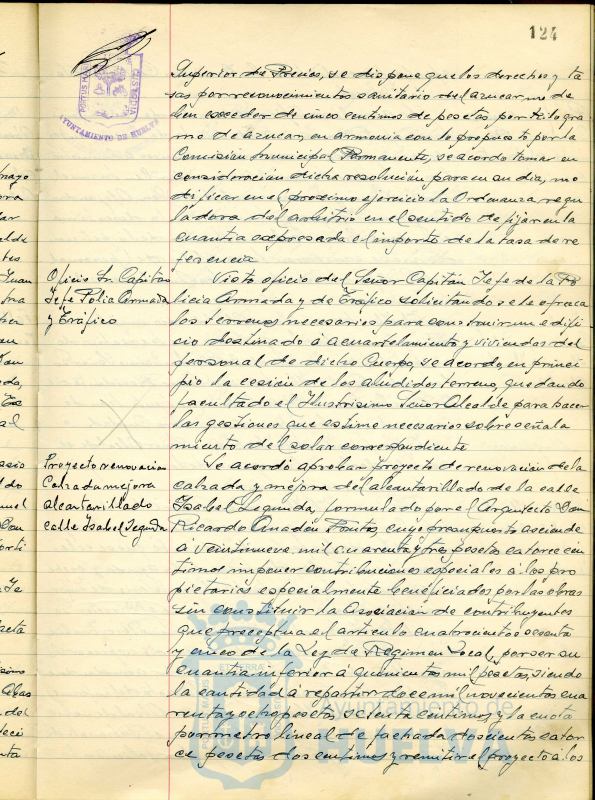 124
AYUNTAMIENTO DE HUELVA
Superior de Precios, se dispone que los derechos y ta
sas por reconocimientos sanitario del azucar no de
ben exceder de cinco centimos de pesetas por kilogra
mo de azucar, en armonia con lo propuesto por la
Comisión Municipal Permanente, se acordo tomar en
consideración dicha resolución para en su dia, mo
dificar en el proximo ejercicio la Ordenanza regu
ladora del arbitrio en el sentido de fijar en la
cuantia expresada el importe de la tasa de re
ferencia
Oficio Sr. Capitan
Jefe Polia Armada
y Tráfico
Visto oficio del Señor Capitán Jefe de la Po
licia Armada y de Tráfico solicitando se le ofrezca
los terrenos necesarios para construir un edifi
cio destinado á acuartelamiento y viviendas del
personal de dicho Cuerpo, se acordo, en princi
pio la cesión de los aludidos terreno, quedando
facultado el Ilustrisimo Señor Alcalde para hacer
las gestiones que estime necesarios sobre señala
miento del solar correspondiente
Proyecto renovacion
Calzada mejora
alcantarillado
calle Isabel Segunda
Se acordó aprobar proyecto de renovación de la
calzada y mejora del alcantarillado de la calle
Isabel Segunda, formulado por el Arquitecto Don
Ricardo Anadón Frutos, cuyo presupuesto asciende
á veintinueve mil cuarenta y tres pesetas catorce cen
timos imponer contribuciones especiales á los pro
pietarios especialmente beneficiados por las obras
sin constituir la Asociación de contribuyentes
que preceptua el articulo cuatrocientos sesenta
y cinco de la Ley de Regimen Local, por ser su
cuantia inferior á quinientas mil pesetas, siendo
la cantidad á repartir doce mil novecientos cua
renta y ocho pesetas setenta centimos y la cuota
por metro lineal de fachada doscientos cator
ce pesetas dos centimos y remitir el proyecto á los
Ayuntamiento de
HUELVA